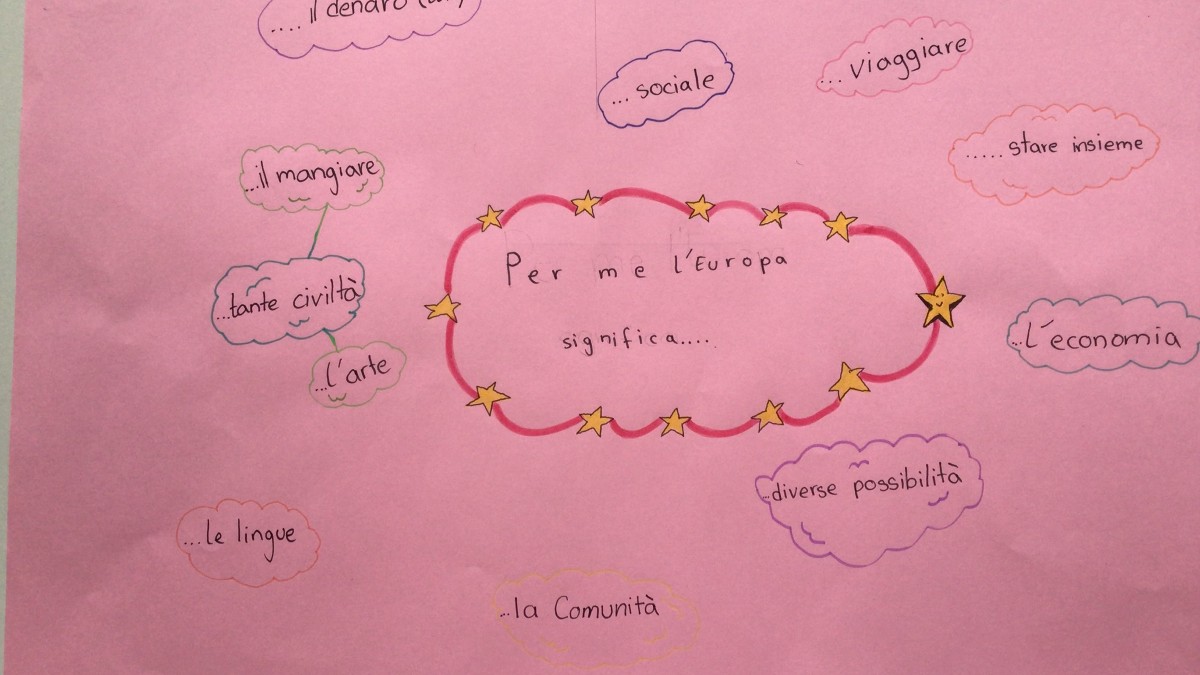 .... il denaro
... sociale
... viaggiare
..... stare insieme
...il mangiare
...tante civiltà
...l'arte
Per me l'Europa
significa....
...l'economia
...diverse possibilità
...le lingue
...la Comunità